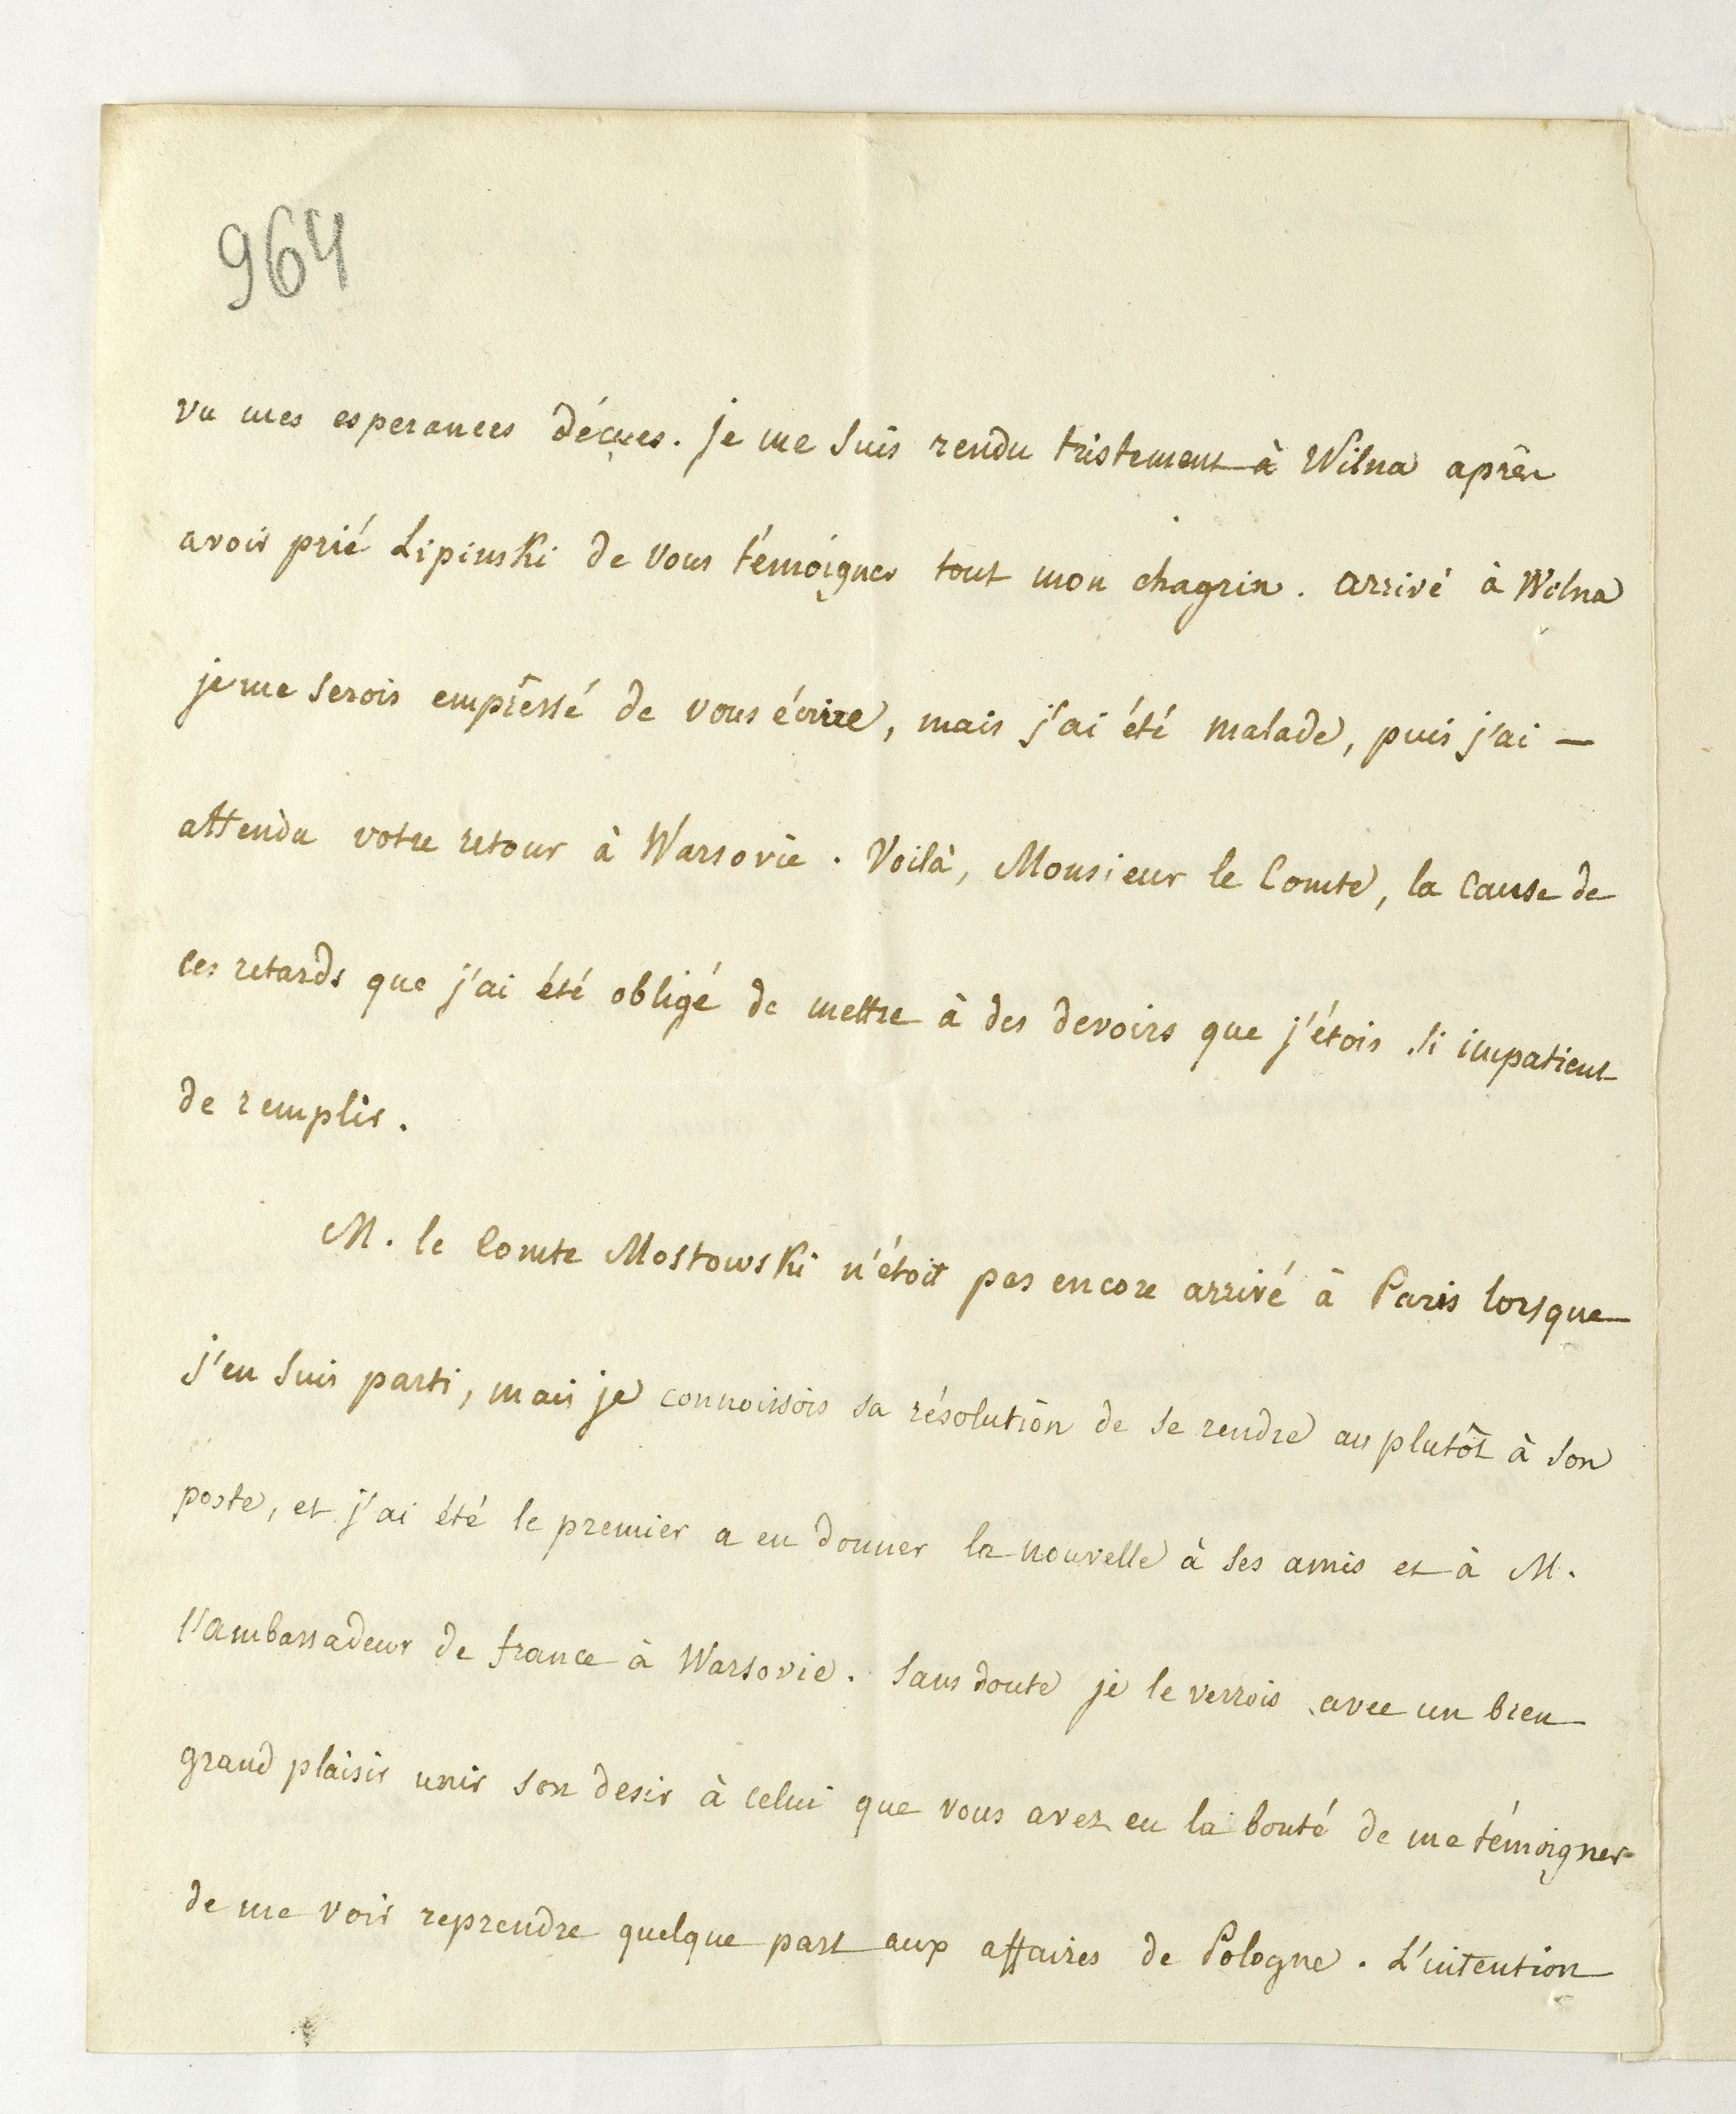 964
vu mes esperances déçues. je me suis rendu tristement à Wilna après
avoir prié Lipinski de vous témoigner tout mon chagrin. arrivé à Wilna
je me serois empressé de vous écrire, mais j'ai été malade, puis j'ai —
attendu votre retour à Warsovie. Voilà, Monsieur le Comte, la cause de
ces retards que j'ai été obligé de mettre à des devoirs que j'étois si impatient
de remplir.
M. le Comte Mostowski n'étoit pas encore arrivé à Paris lorsque
j'en suis parti, mais je connoissois sa résolution de se rendre au plutôt à son
poste, et j'ai été le premier a en donner la nouvelle à ses amis et à M.
l'ambassadeur de france à Warsovie. Sans doute je le verrois avec un bien
grand plaisir unir son desir à celui que vous avez eu la bonté de me témoigner
de me voir reprendre quelque part aux affaires de Pologne. L'intention